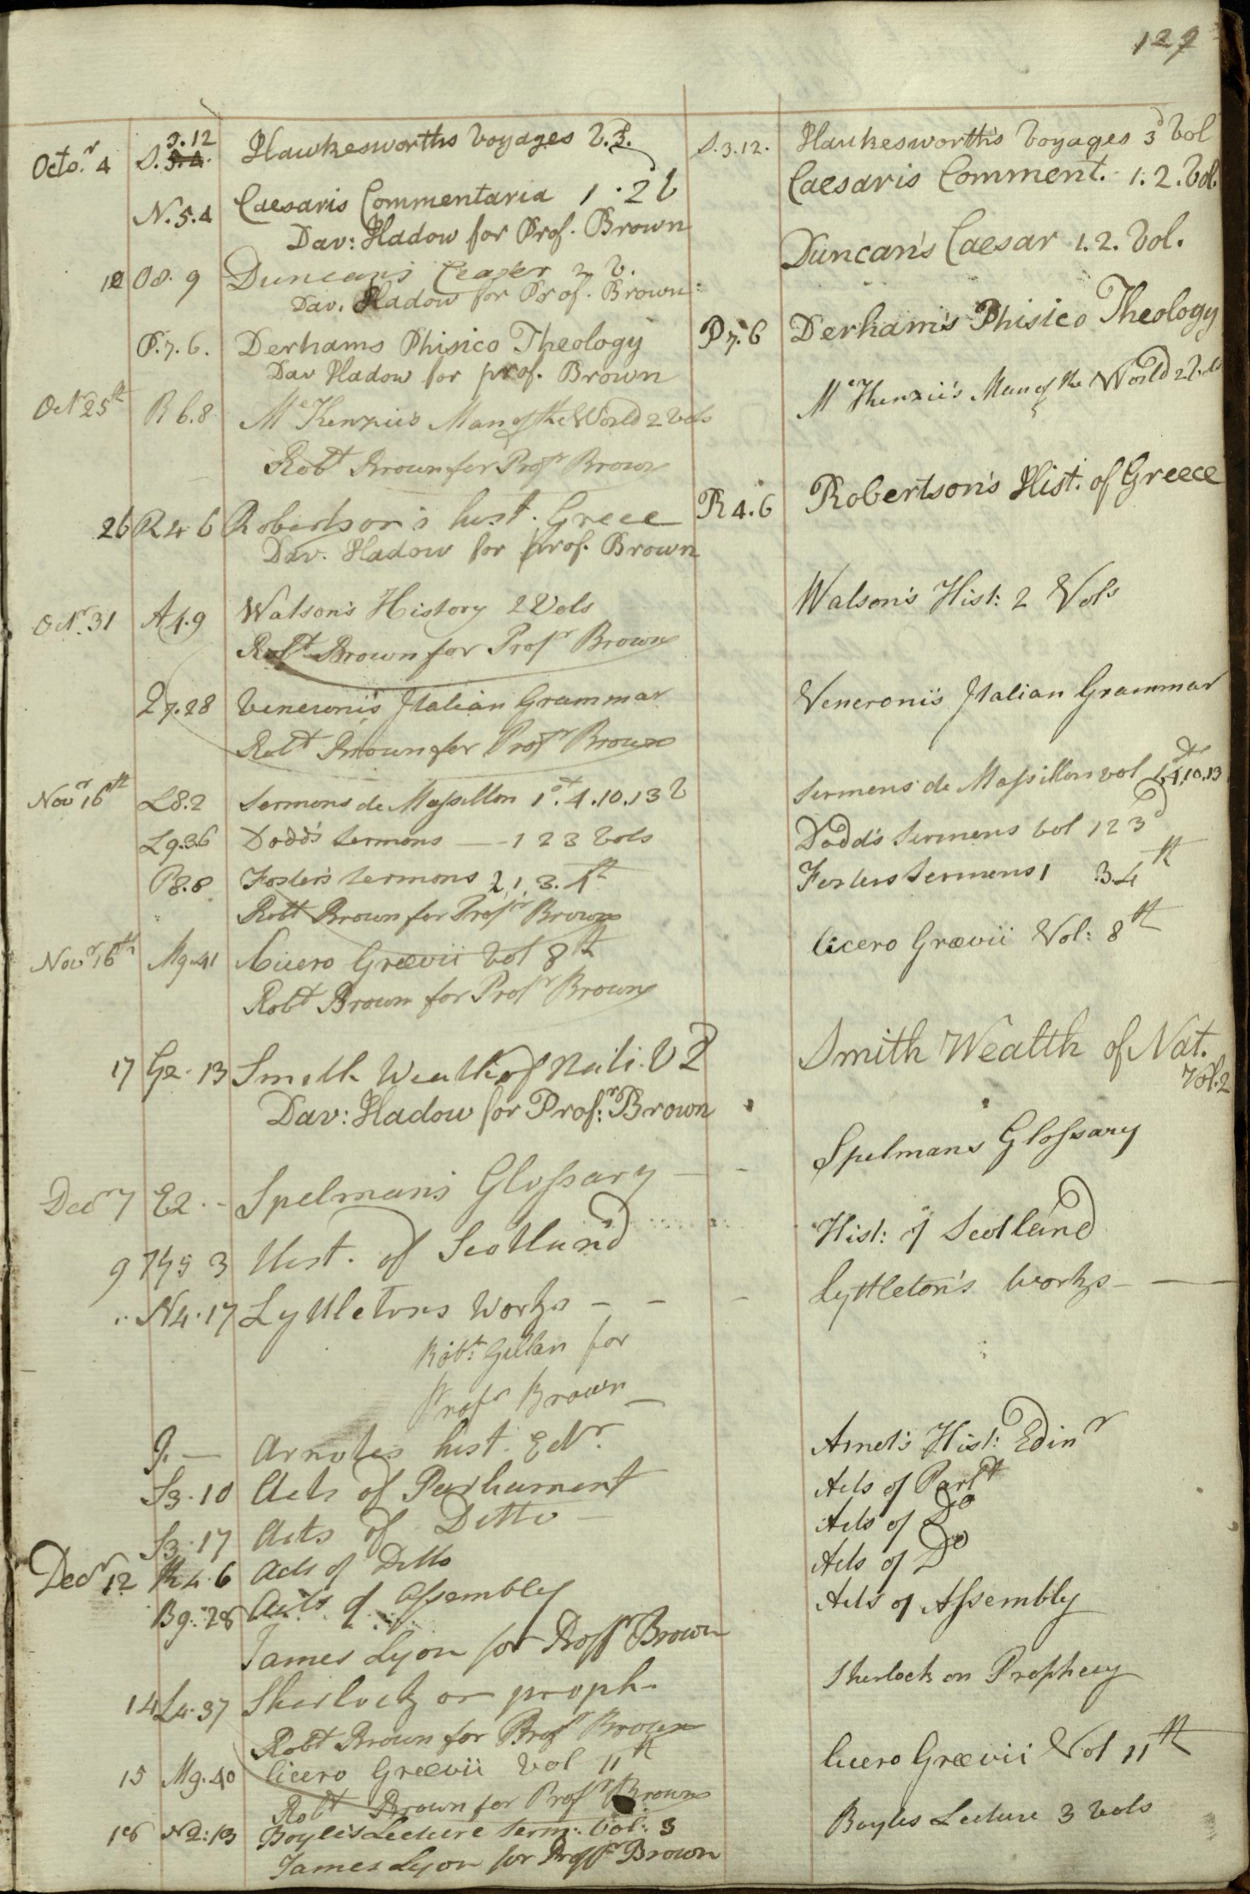 129
Octo.r 4 S. 3.12 5.4. Hawkesworths Voyages V. 3d. S.3.12. Hawkesworth's Voyages 3d Vol
N.5.4 Caesaris Commentaria 1. 2 V Caesaris Comment. 1. 2. Vol.
Dav: Hadow for Prof. Brown
12 Oo. 9 Duncan's Ceaser 2 V. Duncan's Caesar 1. 2. Vol.
Dav. Hadow for Prof. Brown
P.7.6. Derhams Phisico Theology P7.6 Derham's Phisico Theology
Dav Hadow for prof. Brown
Octr 25th R 6.8 McKenzie's Man of the World 2 Vols McKenzie's Man of the World 2 Vols
Robt Brown for Profr Brown
26 R 4 6 Robertson's hist. Greece R 4.6 Robertson's Hist. of Greece
Dav. Hadow for prof. Brown
Octr. 31 A4.9 Watson's History 2 Vols Watson's Hist: 2 Vols
Robt Brown for Profr Brown
27.28 Veneroni's Italian Grammar Veneroni's Italian Grammar
Robt Brown for Profr Brown
Novr 16th L8.2 Sermons de Massillon 1st. 4. 10. 13 V Sermons de Massillon vol 1st 4,10,13
L9.36 Dodd's Sermons — 1 2 3 Vols Dodd's Sermons Vol 1 2 3d
P8.8 Foster's Sermons 2, 1, 3. 4th Fosters Sermons 1 3 4th
Robt Brown for Profr Brown
Novr 16th M9.41 Cicero Grævii Vol 8th Cicero Grævii Vol: 8th
Robt Brown for Profr Brown
17 G2. 13 Smith Wealth of Nati. V 2 Smith Wealth of Nat. Vol. 2
Dav: Hadow for Prof:r Brown
Decr 7 E2. - Spelman's Glossary — - Spelmans Glossary
9 Hist. of Scotland Hist: of Scotland
.. N4.17 Lyttletons Works - - - Lyttleton's Works - —
Robt: Gillan for
Profr Brown —
Arnotes hist. Edr. Arnot's Hist: Edinr
S3.10 Acts of Parliament Acts of Parlt
S3.17 Acts of Ditto - Acts of Do
Decr 12 4.6 Acts of Ditto Acts of Do
B9.28 Acts of Assembly Acts of Assembly
James Lyon for Proffr Brown
14 L4.37 Sherlock on proph. Sherlock on Prophecy
Robt Brown for Profr Brown
15 M9.40 Cicero Grævii Vol 11th Cicero Grævii Vol 11th
Robt Brown for Profr Brown
16 N2:13 Boyle's Lecture Serm: Vol: 3 Boyles Lecture 3 Vols
James Lyon for Proffr Brown